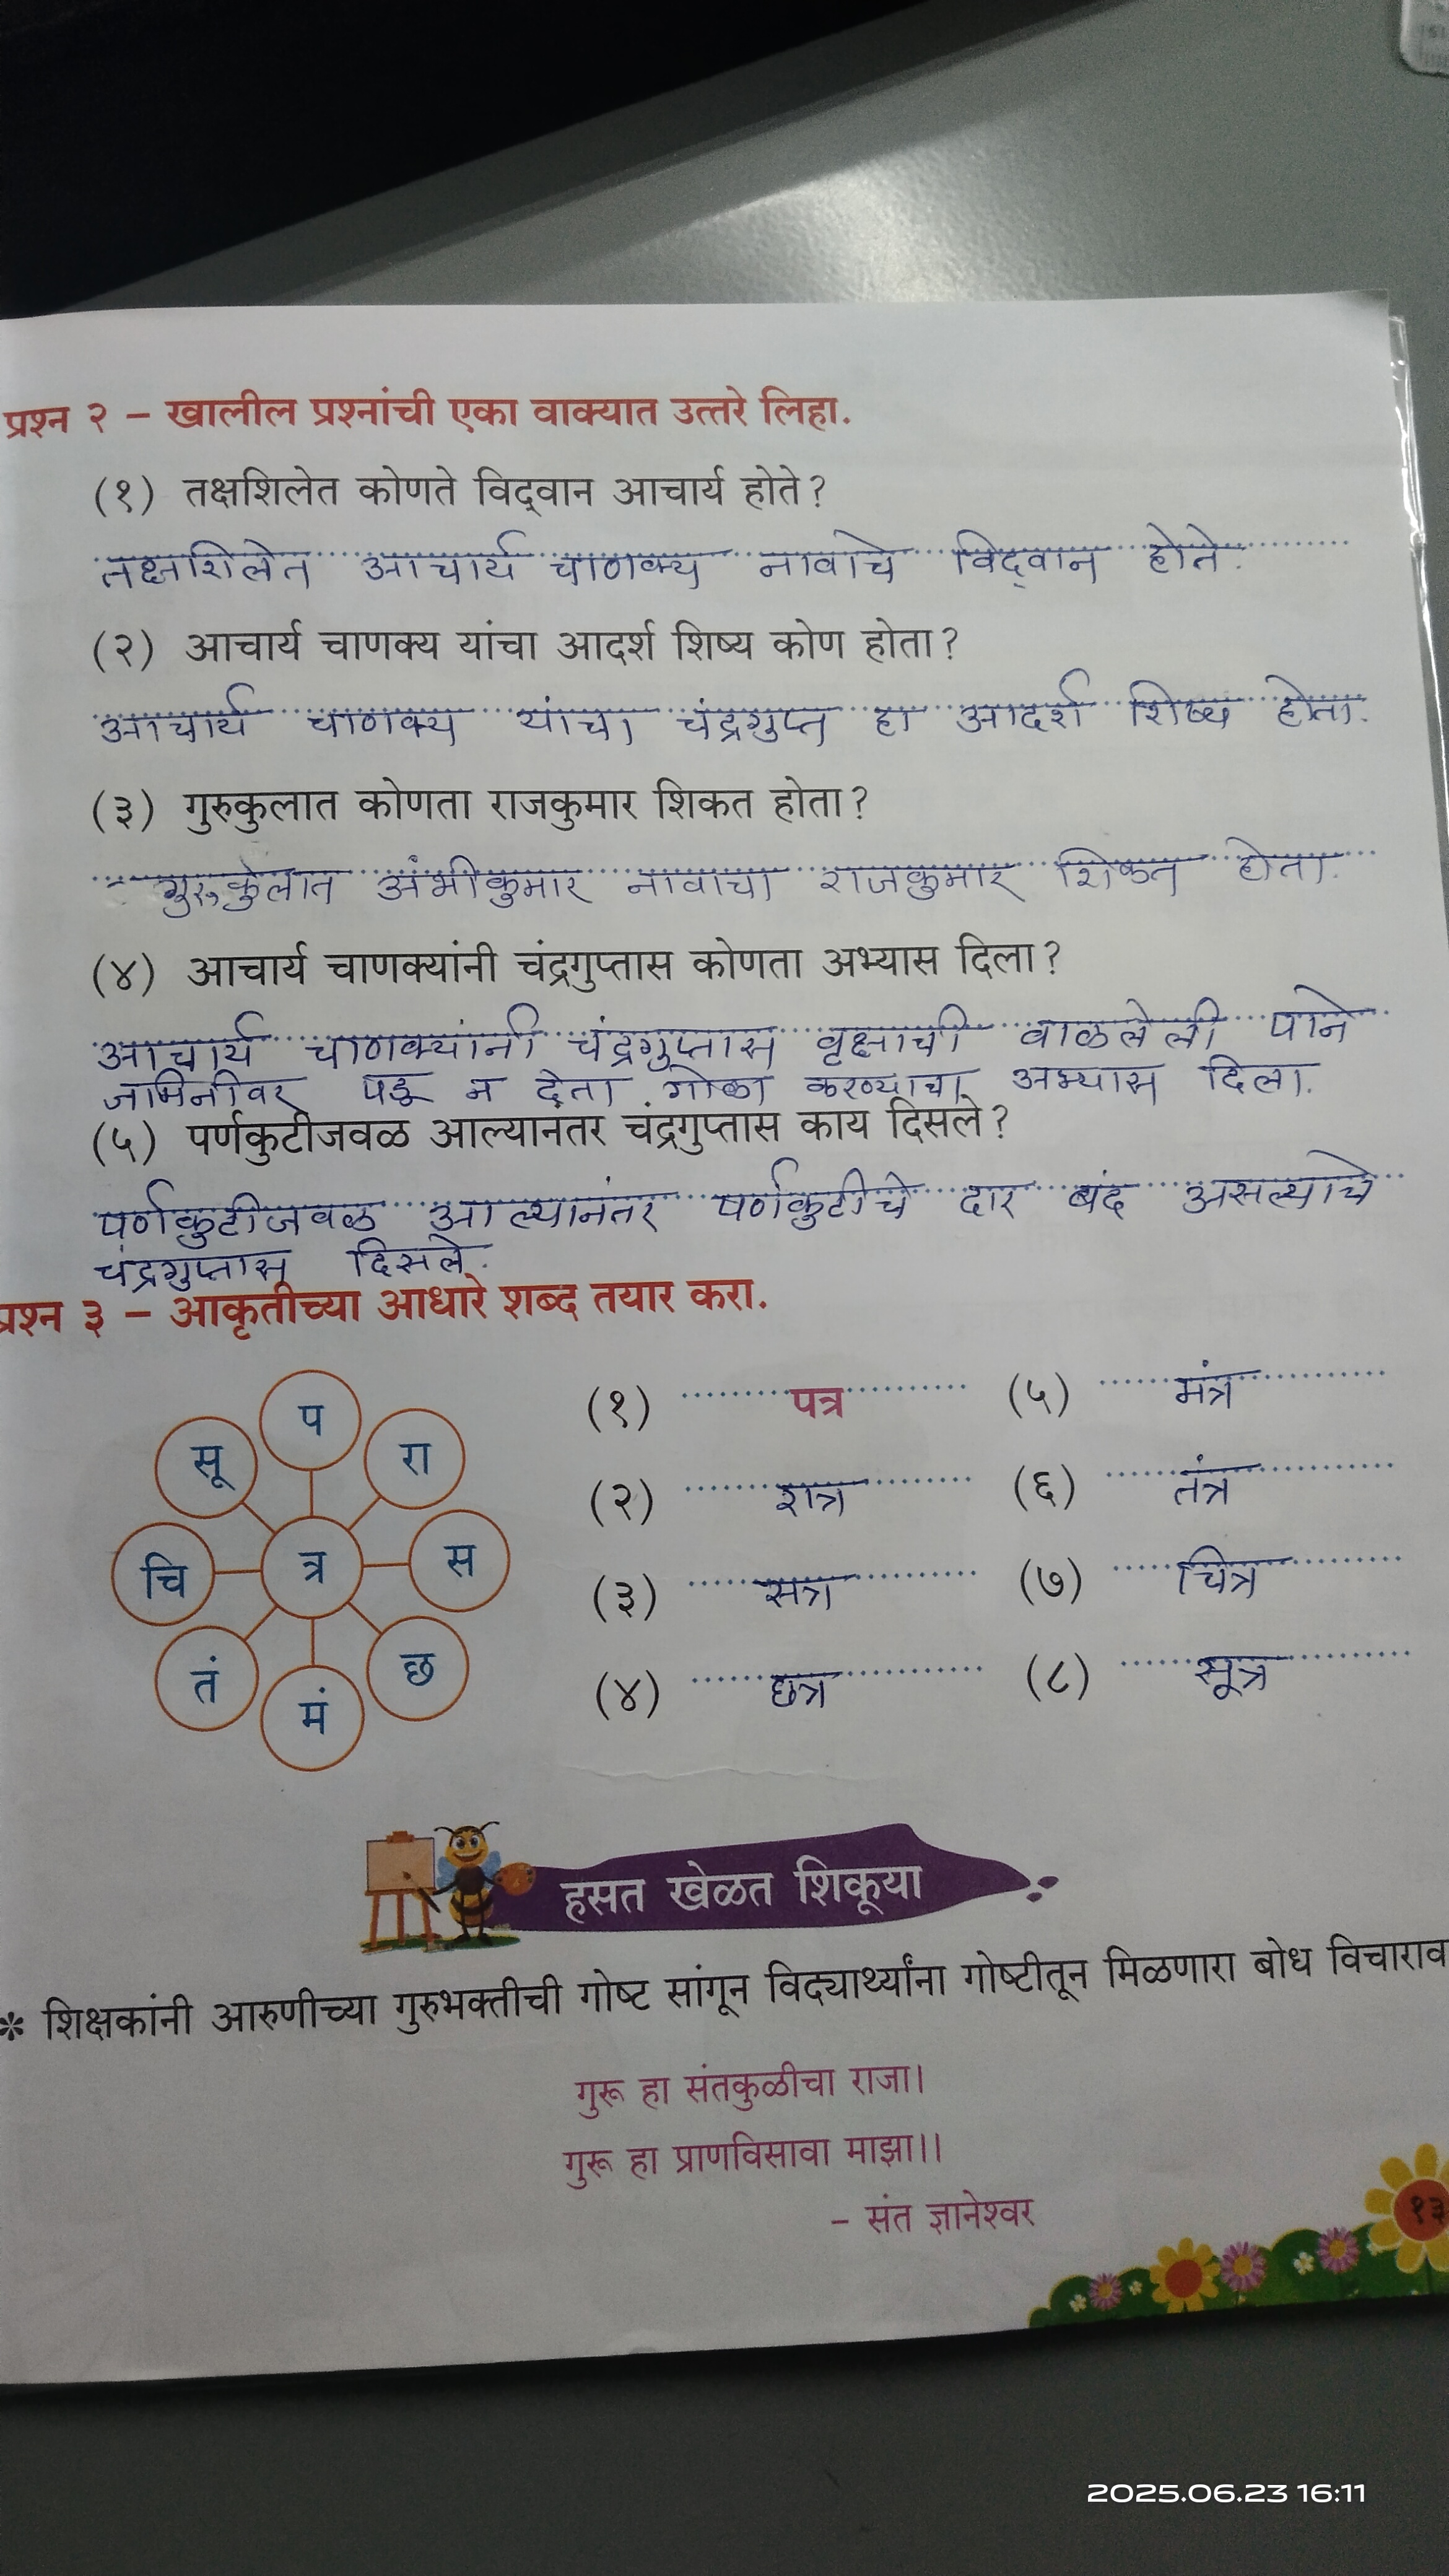 प्रश्न २ – खालील प्रश्नांची एका वाक्यात उत्तरे लिहा.
(१) तक्षशिलेत कोणते विद्‌वान आचार्य होते?
तक्षशिलेत आचार्य चाणक्य नावाचे विद्‌वान होते.
(२) आचार्य चाणक्य यांचा आदर्श शिष्य कोण होता?
आचार्य चाणक्य यांचा चंद्रगुप्त हा आदर्श शिष्य होता.
(३) गुरुकुलात कोणता राजकुमार शिकत होता?
गुरुकुलात अंभीकुमार नावाचा राजकुमार शिकत होता.
(४) आचार्य चाणक्यांनी चंद्रगुप्तास कोणता अभ्यास दिला?
आचार्य चाणक्यांनी चंद्रगुप्तास वृक्षाची वाळलेली पाने
जमिनीवर पडू न देता गोळा करण्याचा अभ्यास दिला.
(५) पर्णकुटीजवळ आल्यानंतर चंद्रगुप्तास काय दिसले?
पर्णकुटीजवळ आल्यानंतर पर्णकुटीचे दार बंद असल्याचे
चंद्रगुप्तास दिसले.
प्रश्न ३ – आकृतीच्या आधारे शब्द तयार करा.
प
सू रा
चि त्र स
तं छ
मं
(१) पत्र (५) मंत्र
(२) रात्र (६) तंत्र
(३) सत्र (७) चित्र
(४) छत्र (८) सूत्र
हसत खेळत शिकूया
* शिक्षकांनी आरुणीच्या गुरुभक्तीची गोष्ट सांगून विद्यार्थ्यांना गोष्टीतून मिळणारा बोध विचाराव
गुरू हा संतकुळीचा राजा।
गुरू हा प्राणविसावा माझा।।
– संत ज्ञानेश्वर
१३
2025.06.23 16:11